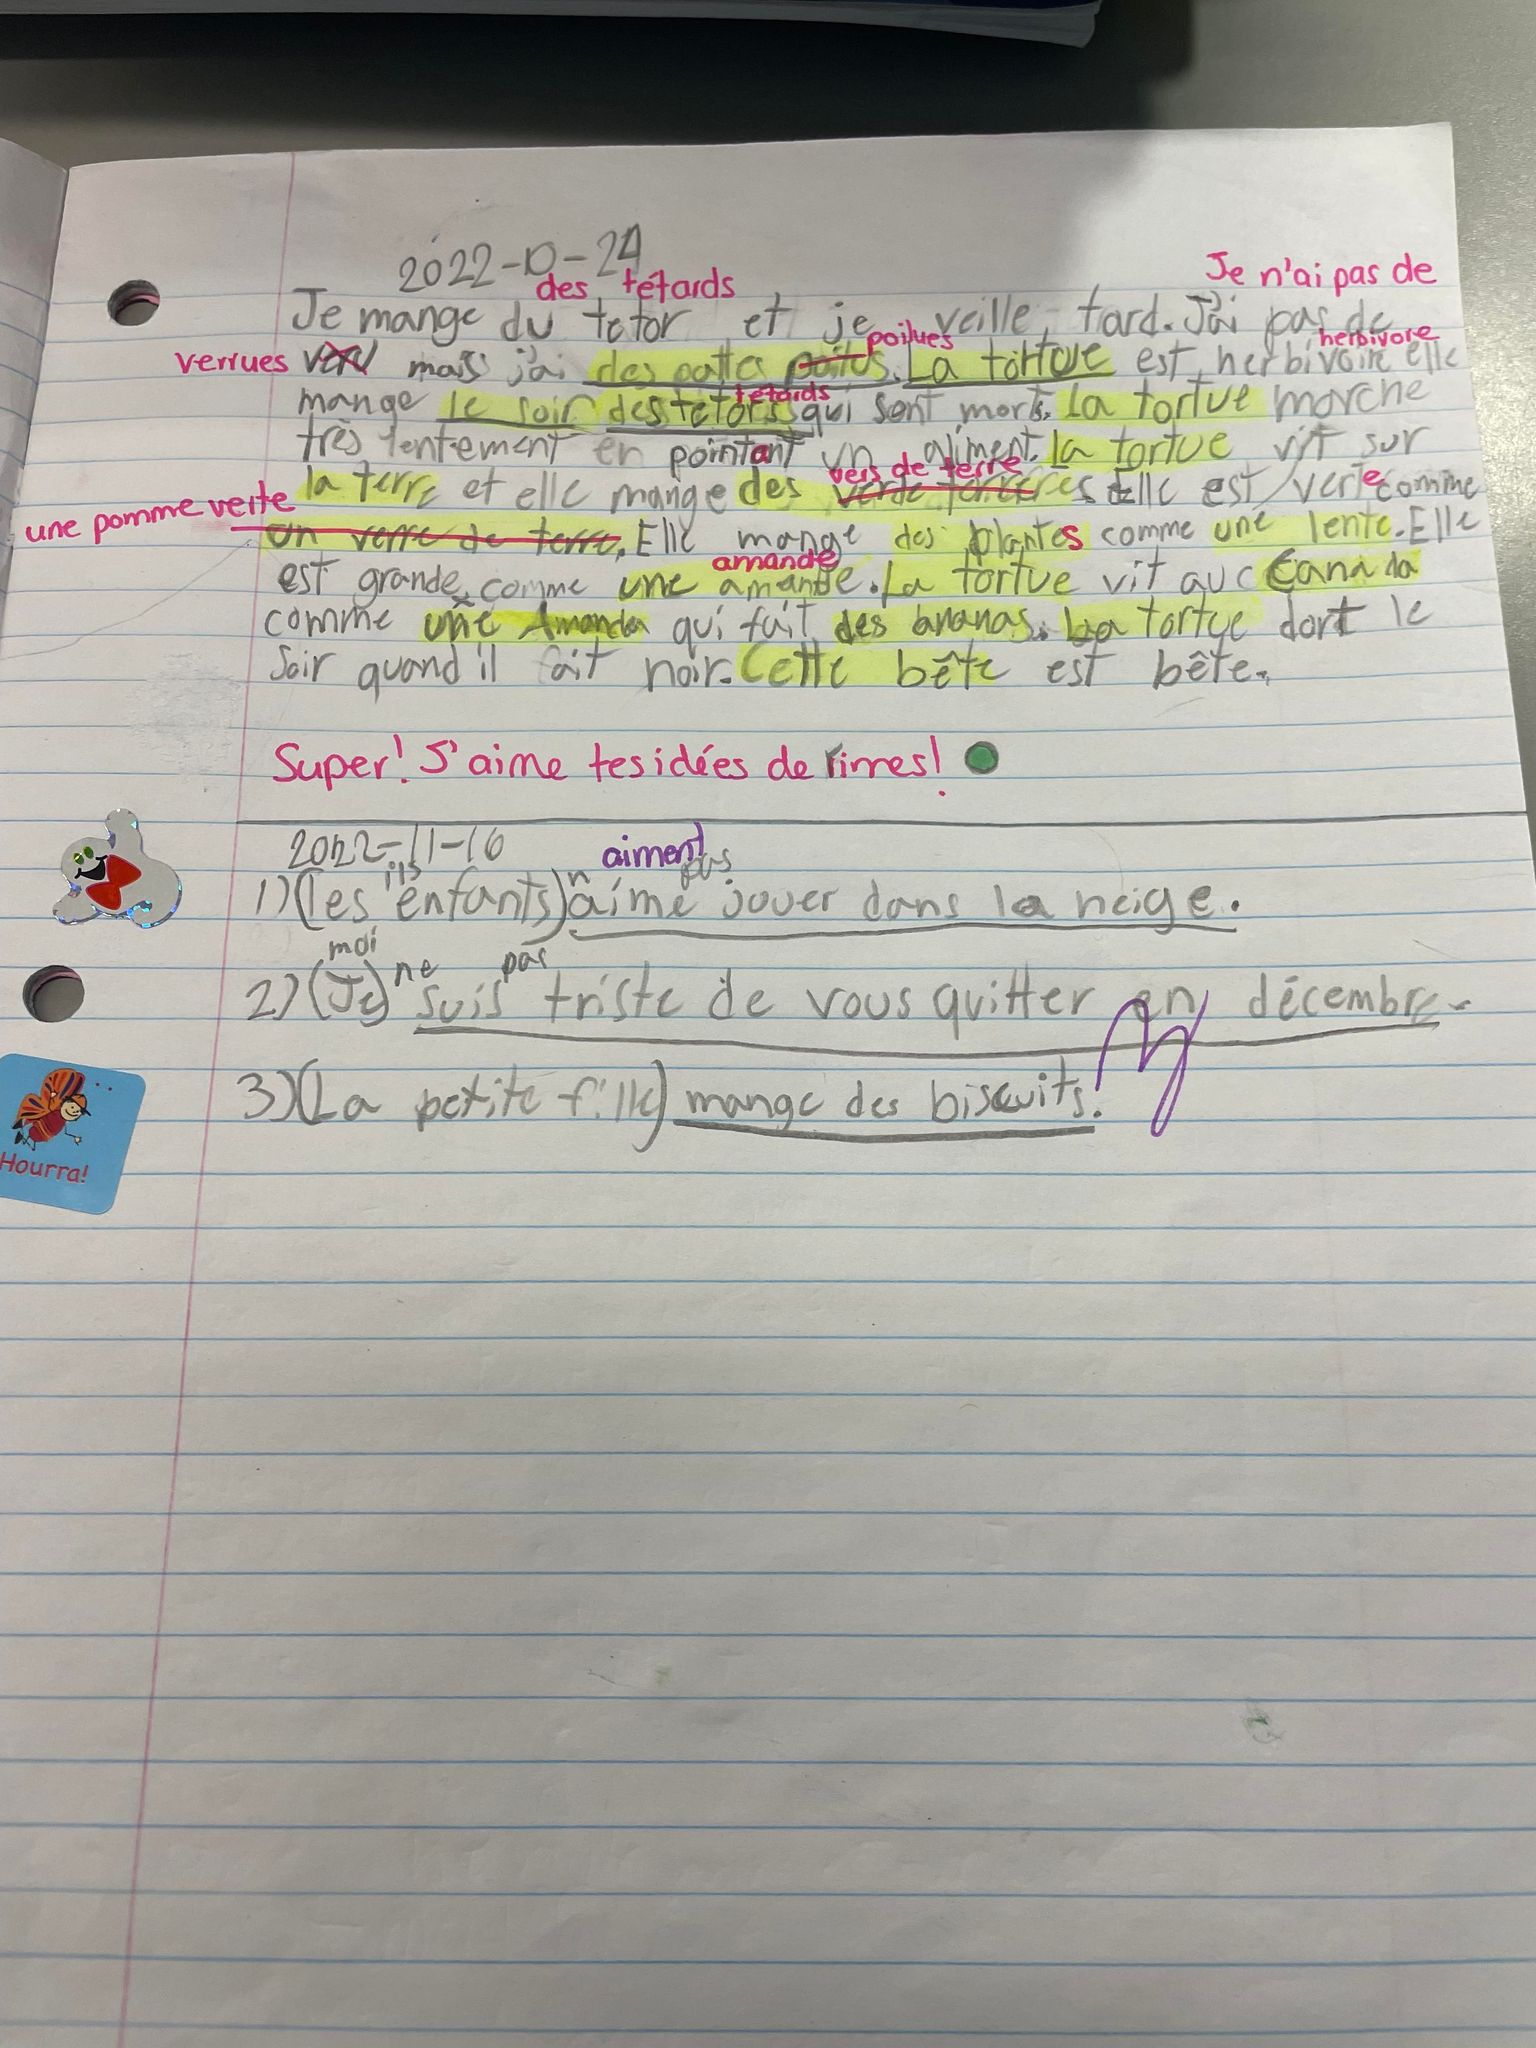 2022-10-24
des têtards Je n'ai pas de
Je mange du tetor et je veille tard. J'ai pas de
verrues mais j'ai des patta poilues. La tortue est herbivoire elle
poilues herbivore
mange le soir des tetors qui sont morts. La tortue marche
têtards
très lentement en pointant un aliment. la tortue vit sur
vers de terre
la terre et elle mange des Elle est verte comme
une pomme verte
un verre de terre. Elle mange des plantes comme une lente. Elle
amande
est grande comme une amande. La tortue vit auc Canada
comme une Amanda qui fait des ananas. La tortue dort le
soir quand il fait noir. Cette bête est bête.
Super! J'aime tes idées de rimes!
2022-11-16
ils n aiment pas
1) (Les enfants) aime jouer dans la neige.
moi ne pas
2) (Je) suis triste de vous quitter en décembre.
3) (La petite fille) mange des biscuits.
Hourra!